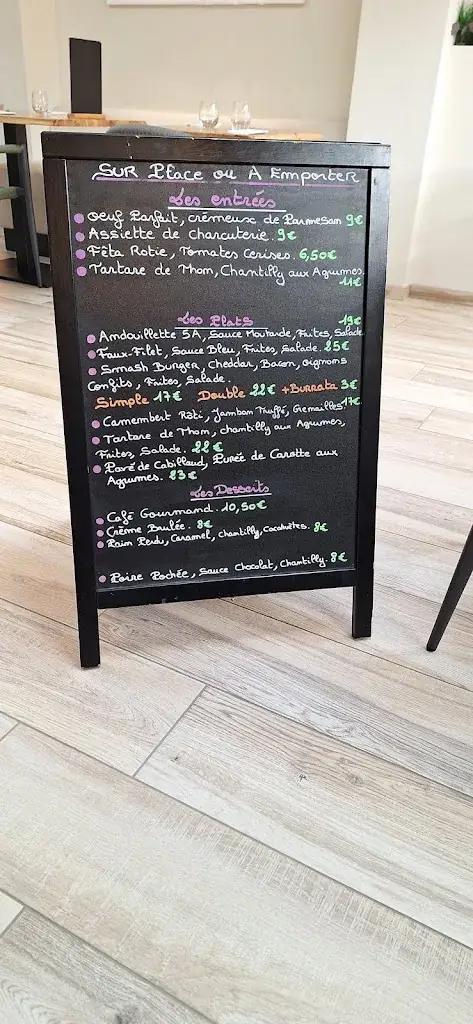 SUR Place ou A Emporter
Les entrées
Oeuf Parfait, crémeux de Parmesan 9€
Assiette de Charcuterie. 9€
Fêta Rotie, Tomates Cerises. 6,50€
Tartare de Thom, Chantilly aux Agrumes.
11€
Les Plats 19€
Andouillette 5A, Sauce Moutarde, Frites, Salade
Faux-Filet, Sauce Bleu, Frites, Salade. 25€
Smash Burger, Cheddar, Bacon, oignons
Confits, Frites, Salade.
Simple 17€ Double 22€ +Burrata 3€
Camembert Rôti, Jambon Truffé, Grenailles. 17€
Tartare de Thom, chantilly aux Agrumes,
Frites, Salade. 22€
Pavé de Cabillaud, Purée de Carotte aux
Agrumes. 23€
Les Desserts
Café Gourmand. 10,50€
Crème Brulée. 8€
Pain Perdu, Caramel, chantilly, Cacahuètes. 8€
Poire Pochée, Sauce Chocolat, Chantilly. 8€